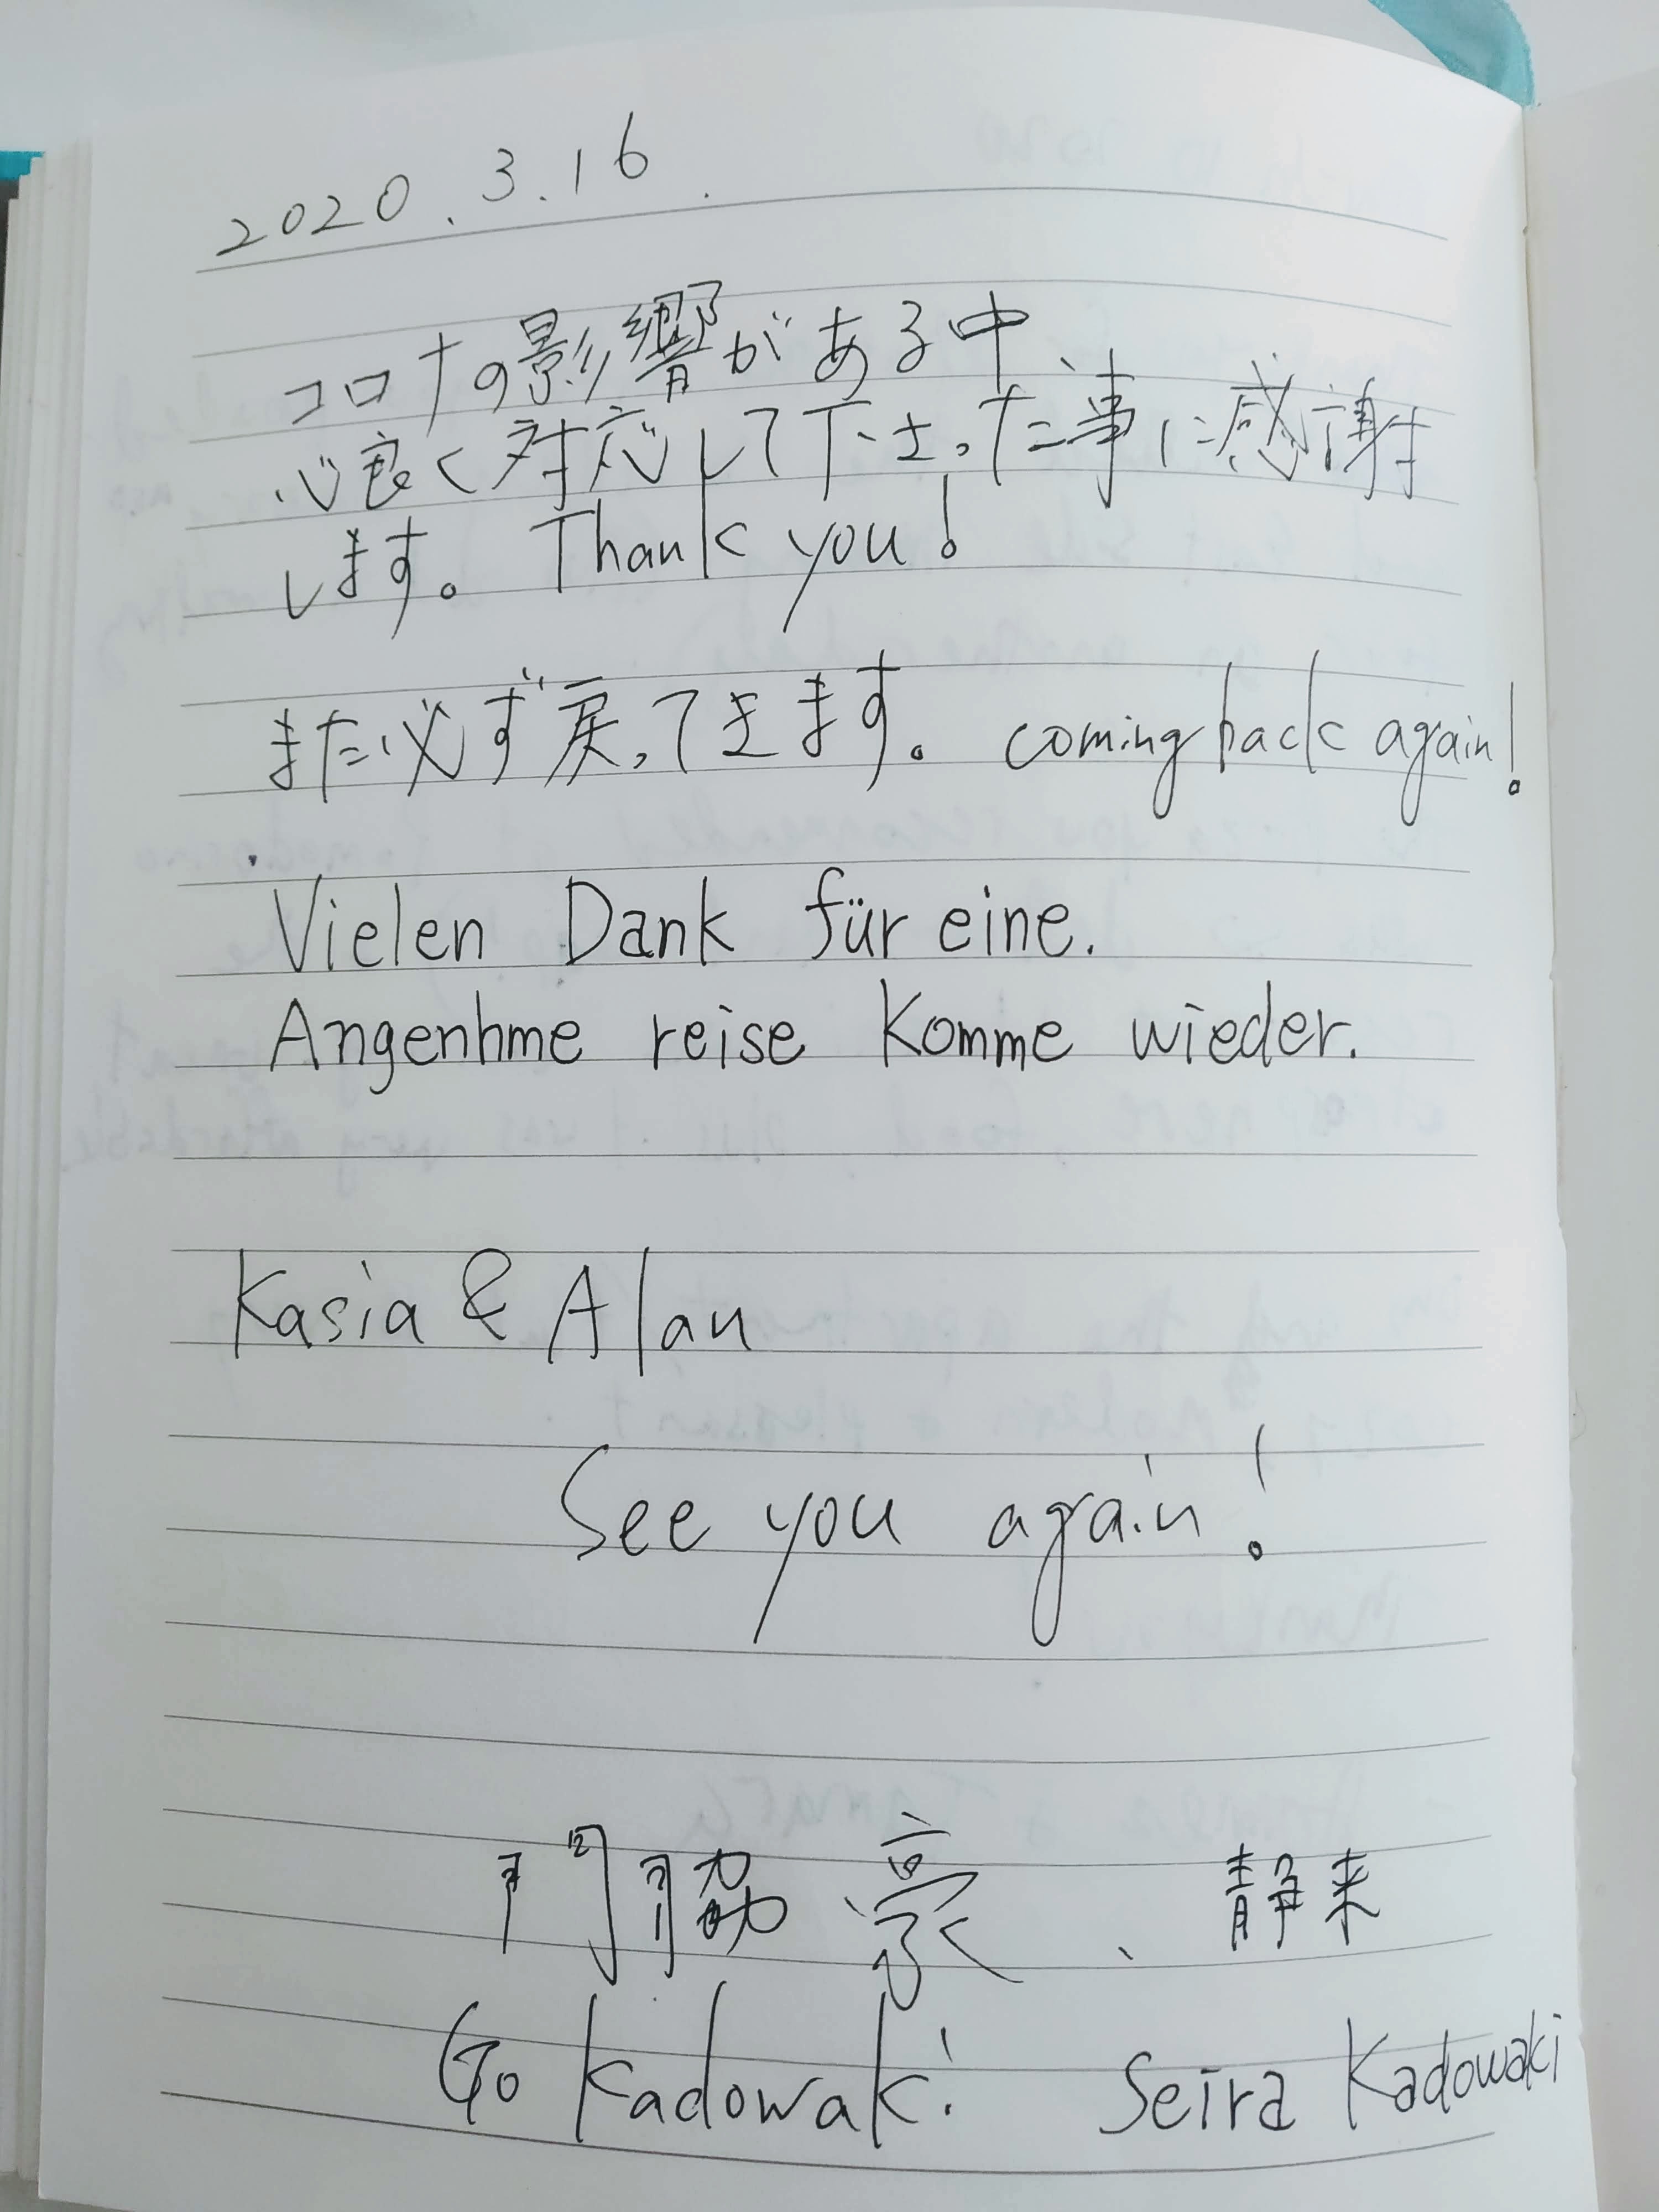 2020.3.16.
コロナの影響がある中
心良く対応して下さった事に感謝
します。 Thank you!
また必ず戻ってきます。 coming back again!
Vielen Dank für eine.
Angenhme reise Komme wieder.
Kasia & Alan
See you again!
門脇 豪、静来
Go Kadowaki Seira Kadowaki